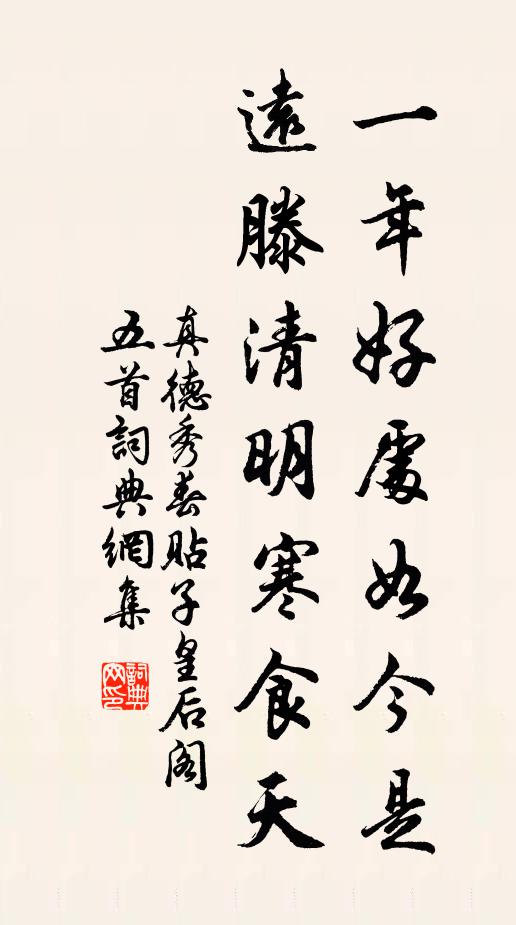 一年好處如今是
遠勝清明寒食天
真德秀春貼子皇后閣
五首詞典網集
詞典網印